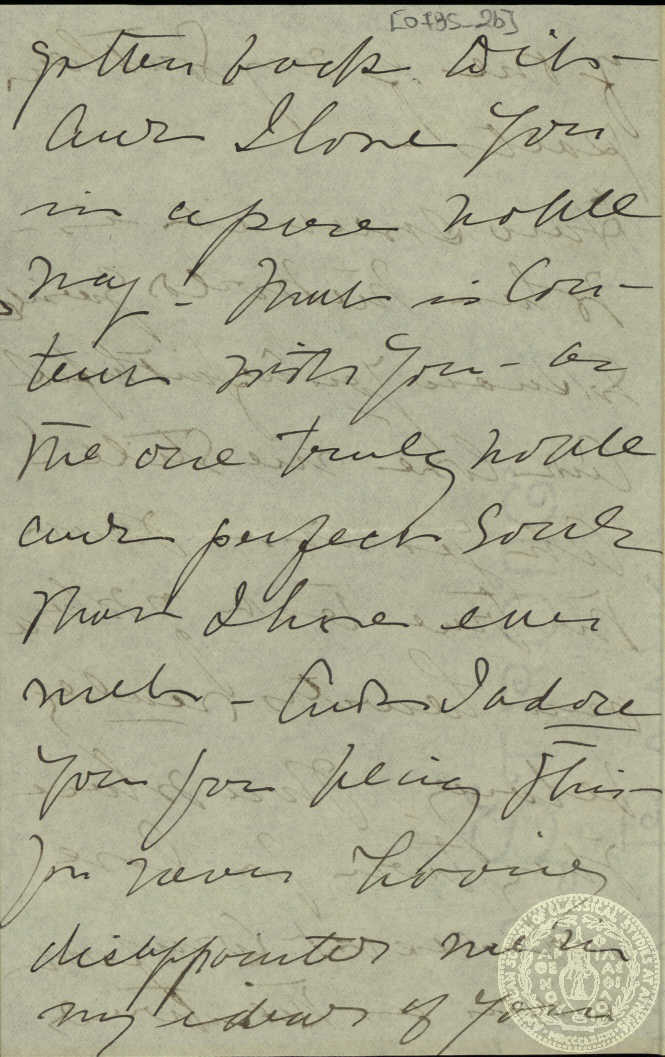 [0795_2b]
gotten back. Dils -
And I love you
in a pure noble
way - that is Con-
tent with you - as
the one truly noble
and perfect Soul
that I have ever
met - And I adore
you for being this -
for never having
disappointed me in
my ideas of you